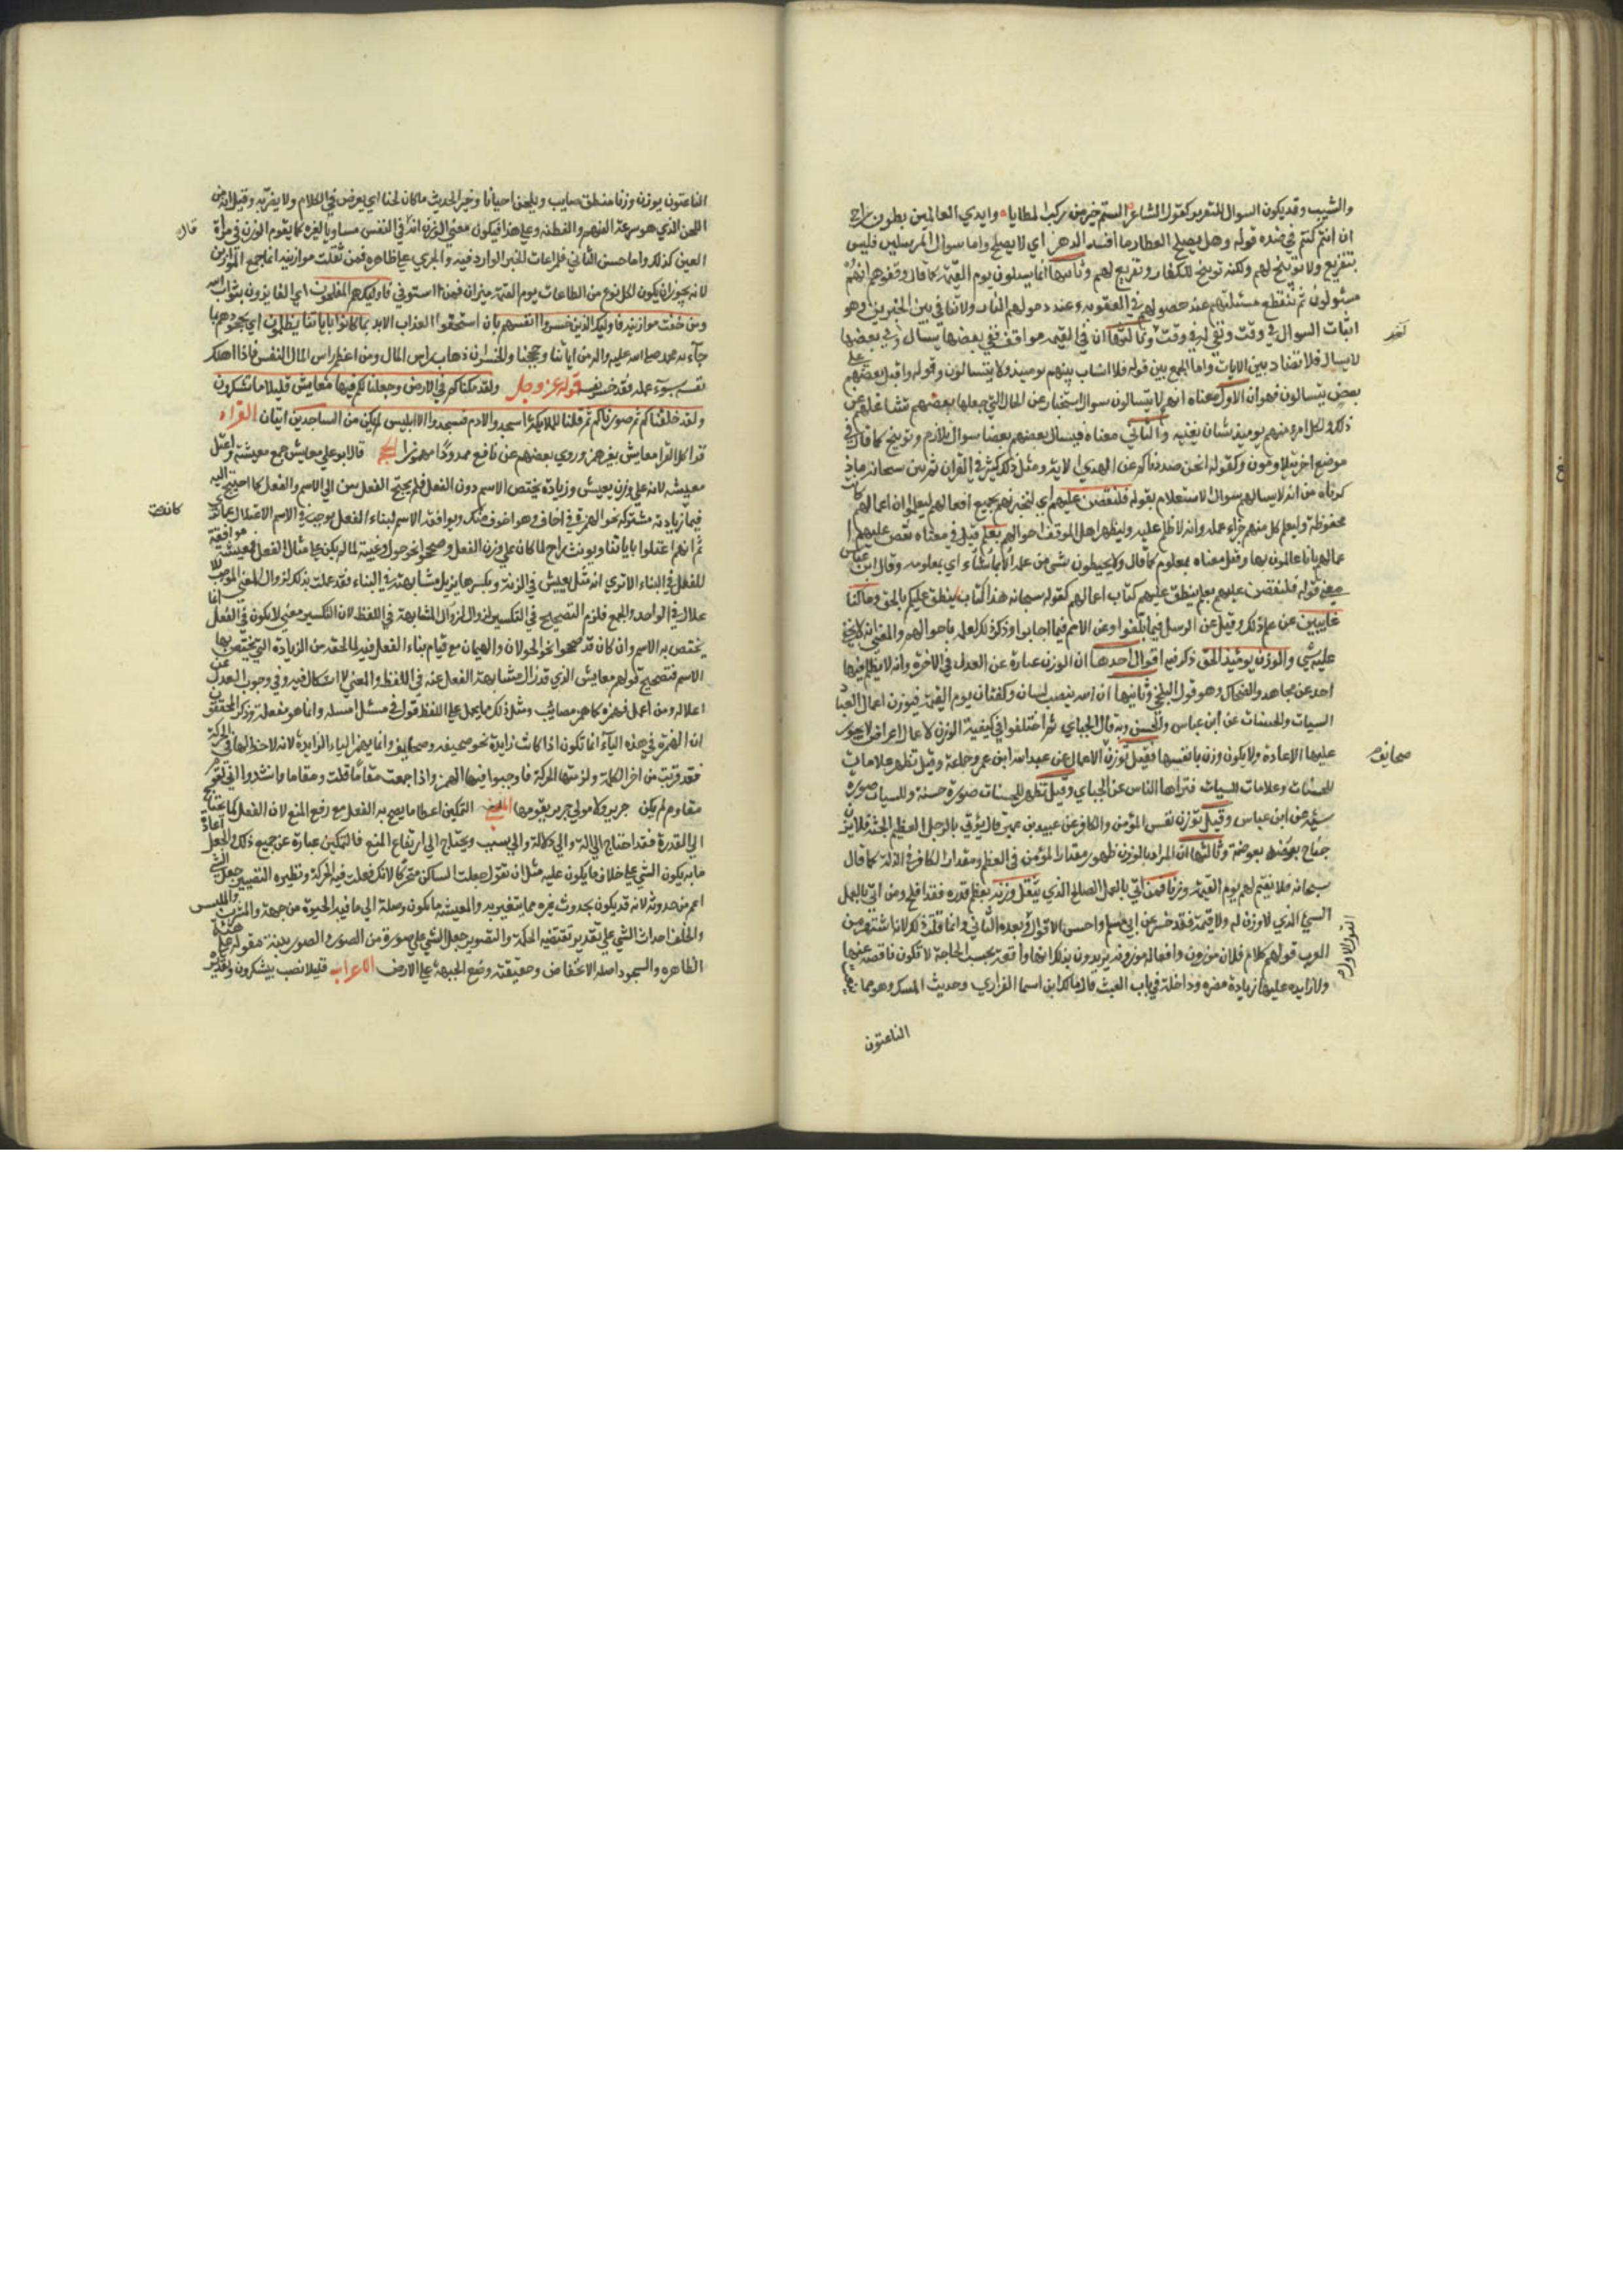 والشيب وقد يكون السوال للتقرير كقول الشاعر الستم خير من ركب المطايا وايدي العالمين بطون راح
ان انتم كنتم في ضده قوله وهل يصلح العطار ما افسد الدهر اي لا يصلح واما سوال المرسلين فليس
بتقريع ولا توبيخ لهم ولكنه توبيخ للكفار وتقريع لهم وثانيها انما يسيلون يوم القيمة كما قال وقفوهم انهم
مسئولون ثم تنقطع مسئلتهم عند حصولهم في العقوبة وعند دخولهم النار ولا تنافي بين الخبرين وهو
اثبات السوال في وقت ونفيه في وقت وثالثها ان في القيمة مواقف ففي بعضها يسأل وفي بعضها
لا يسال فلا تضاد بين الايات واما الجمع بين قوله فلا انساب بينهم يوميذ ولا يتسالون وقوله واقبل بعضهم على
بعض يتسالون فهو ان الاول معناه انهم لا يتسالون سوال استخبار عن الحال التي جهلها بعضهم لتشاغلهم عن
ذلك ولكل امرء منهم يوميذ شان يغنيه والثاني معناه فيسال بعضهم بعضا سوال تلاوم وتوبيخ كما قال في
موضع اخر يتلاومون وكقوله انحن صددناكم عن الهدي الاية ومثل ذلك كثير في القران ثم بين سبحانه ما
ذكرناه من انه لا يسالهم سوال الاستعلام بقوله فلنقصن عليهم اي لنخبرنهم بجميع افعالهم ليعلموا ان اعمالهم كانت
محفوظة وليعلم كل منهم جزاء عمله وانه لا ظلم عليه وليظهر لاهل الموقف احوالهم بعلم قيل في معناه نقص عليهم
اعمالهم بانا عالمون بها وقيل معناه بمعلوم كما قال ولا يحيطون بشي من علمه الا بما شاء اي بمعلومه وقال ابن عباس
معني قوله فلنقصن عليهم بعلم ينطق عليهم كتاب اعمالهم كقوله سبحانه هذا كتابنا ينطق عليكم بالحق وما كنا
غايبين عن علم ذلك وقيل عن الرسل فيما بلغوا وعن الامم فيما اجابوا وذكر ذلك لعلمه باحوالهم والمعني انه لا يخفي
عليه شي والوزن يوميذ الحق ذكر فيه اقوال احدها ان الوزن عبارة عن العدل في الاخرة وانه لا يظلم فيها
احد عن مجاهد والضحاك وهو قول البلخي وثانيها ان الله ينصب لسان وكفتان يوم القيمة فيوزن اعمال العباد
السيات والحسنات عن ابن عباس والحسن وبه قال الجباي ثم اختلفوا في كيفية الوزن لان الاعمال اعراض لا يجوز
عليها الاعادة ولا يكون وزن بانفسها فقيل توزن الاعمال عن عبد الله ابن عمر وجماعة وقيل تظهر علامات
للحسنات وعلامات للسيات فتراها الناس عن الجباي وقيل تظهر للحسنات صورة حسنة وللسيات صورة
سيئة عن ابن عباس وقيل توزن نفس المؤمن والكافر عن عبيد بن عمير قال يؤتي بالرجل العظيم الجثة فلا يزن
جناح بعوضة بعوضة وثالثها ان المراد بالوزن ظهور مقدار المؤمن في العظم ومقدار الكافر في الذلة كما قال
سبحانه فلا نقيم لهم يوم القيمة وزنا فمن اتي بالعمل الصالح الذي يثقل وزنه يعظم قدره فقد افلح ومن اتي بالعمل
السيئ الذي لا وزن له ولا قيمة فقد خسر عن ابي مسلم واحسن الاقوال وبعده الثاني وانما قلنا ذلك لانه اشتهر من
العرب قولهم كلام فلان موزون وافعاله موزونة يريدون بذلك انها واقعة بحسب الحاجة لا تكون ناقصة عنها
ولا زايده عليها زيادة مضرة وداخلة في باب العبث قال مالك ابن اسما الفزاري وحديث المسك وهو مما
الناعتون
صحايف
الناعتون يوزن وزنا منطق صايب ويلحن احيانا وخير الحديث ما كان لحنا اي يعرض في الكلام ولا يفرته وقيل انه من
اللحن الذي هو سرعة الفهم والفطنة وعلي هذا فيكون معني الوزن انه في النفس مساويا لغيره كما يقوم الوزن في مراة
قال
العين كذلك واما حسن الثاني فلمراعات الخبر الوارد فيه والجري علي ظاهره فمن ثقلت موازينه انما جمع الموازين
لانه يجوز ان يكون لكل نوع من الطاعات يوم القيمة ميزان فاوليك هم المفلحون اي الفايزون بثواب الله
ومن خفت موازينه فاوليك الذين خسروا انفسهم بان استحقوا العذاب الابد بما كانوا باياتنا يظلمون اي بجحودهم بما
جآء به محمد صلي الله عليه واله من اياتنا وحججنا والخسران ذهاب راس المال ومن اعظم راس المال النفس فاذا اهلك
نفسه بسوء عمله فقد خسر نفسه قوله عز وجل ولقد مكناكم في الارض وجعلنا لكم فيها معايش قليلا ما تشكرون
ولقد خلقناكم ثم صورناكم ثم قلنا للملايكة اسجدوا لادم فسجدوا الا ابليس لم يكن من الساجدين ايتان القراه
قرا كل القرا معايش بغير همز وروي بعضهم عن نافع ممدودا مهموزا قال ابو علي معايش جمع معيشة واعتل
معيشه لانه علي وزن يعيش وزيادة يختص الاسم دون الفعل فلم يحتج الفصل بين الاسم والفعل كما احتيج اليه
كانحن
فيما زيادته مشتركة نحو الهمزة في اخاف وهو اخوف منك وموافقة الاسم لبناء الفعل يوجب في الاسم الاعتلال
للفعل في البناء الا تري انه مثل يعيش في الزنة وبكسرها يزيل مشابهته في البناء فقد علمت بذلك زوال المعني الموجب
علال في الواحد والجمع فلزم التصحيح في التكسير لزوال المشابهة في اللفظ لان التكسير معني لا يكون في الفعل انما
يختص به الاسم وان كان قد صححوا نحو الجولان والهيمان مع قيام بناء الفعل فيه لما لحقه من الزيادة التي يختص بها
الاسم فتصحيح قولهم معايش الذي قد زال مشابهة الفعل عنه في اللفظ والمعني لا اشكال فيه وفي وجوب العدول عن
اعلاله ومن اعل فهمزه كما همز مصايب ومثل ذلك مما يحمل علي اللفظ قولهم في مسيل امسله وانما هو مفعلة وذكر المحققون
ان الهمزة في هذه اليآء انما تكون اذا كانت زايدة نحو صحيفه وصحايف وانما يهمز الياء الزايدة لانه لا حظ لها في الحركة
فقد قربت من اخر الكلمة ولزمتها الحركة فاوجبوا فيها الهمز واذا جمعت مقاما قلت ومقاما وانشدوا اني لقوم
مقاوم لم يكن جرير ولا مولي جرير يقومها المعني التمكين اعطا ما يصح به الفعل مع رفع المنع لان الفعل كما يحتاج
الي القدرة فقد احتاج الي الة والي دلالة والي سبب ويحتاج الي ارتفاع المنع فالتمكين عبارة عن جميع ذلك والجعل
ما به يكون الشي علي خلاف ما يكون عليه مثل ان تقول جعلت الساكن متحركا لانك فعلت فيه الحركة ونظيره التصيير جعل الشي
اعم من حدوثه لانه قد يكون بحدوث غيره مما يتغير به والمعيشة ما يكون وصلة الي ما فيه الحيوة من جهة والمشرب والملبس
والخلق احداث الشي علي تقدير تقتضيه الحكمة والتصوير جعل الشي علي صورة من الصور والصورة بنية مقومة علي هيئة
الظاهره والسجود اصله الانخفاض وحقيقته وضع الجبهة علي الارض الاعراب قليلا نصب بيشكرون وتقديره